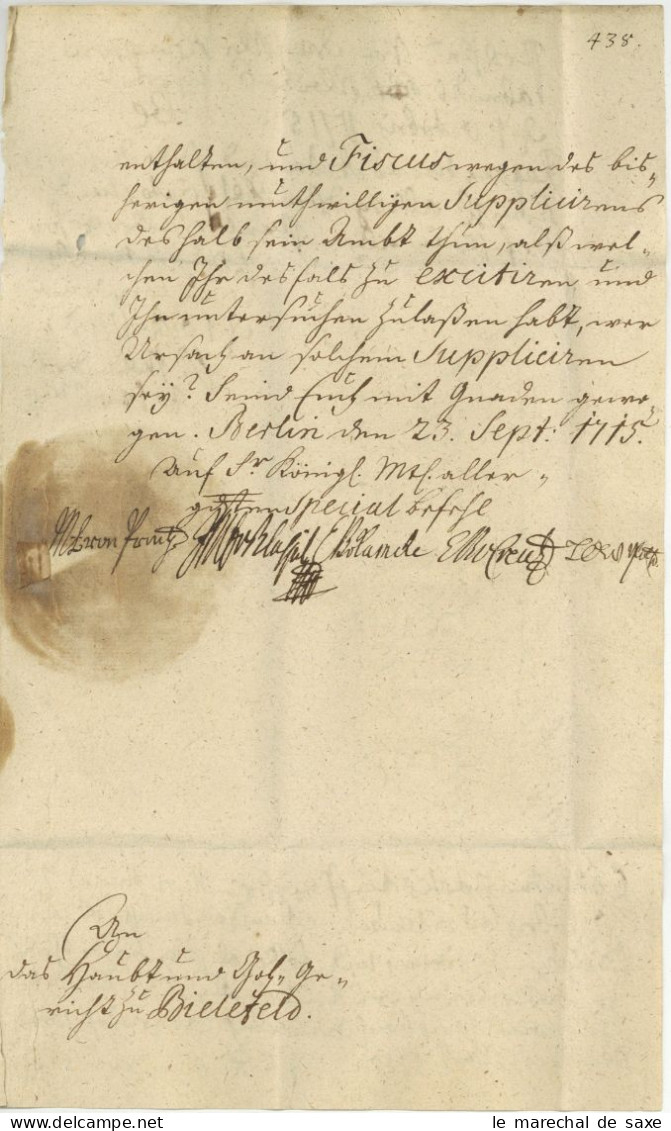 438.
enthalten, und Fiscus wegen des bis-
herigen muthwilligen Supplicirens
deshalb sein Ambt thun, alß wel-
chen Ihr desfals zu excitiren und
Ihn untersuchen zulaßen habt, wer
Ursach an solchem Suppliciren
sey? Seind Euch mit Gnaden gewo-
gen. Berlin den 23. Sept: 1715.
Auf Sr Königl. Mth. aller-
gnsten Special befehl
An
das Haubt und Goh-Ge-
richt zu Bielefeld.
le marechal de saxe